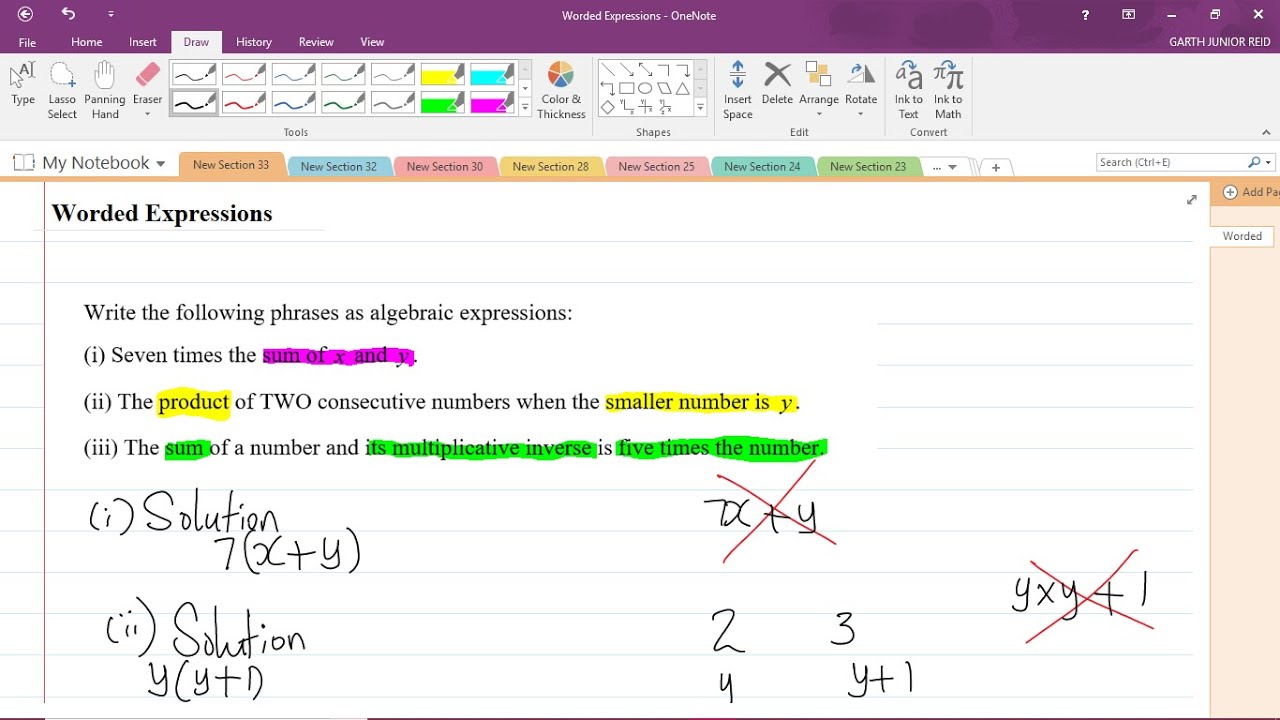 Worded Expressions - OneNote
?
GARTH JUNIOR REID
File Home Insert Draw History Review View
Type
Lasso Select
Panning Hand
Eraser
Color & Thickness
Insert Space
Delete
Arrange
Rotate
Ink to Text
Ink to Math
Tools
Shapes
Edit
Convert
My Notebook
New Section 33
New Section 32
New Section 30
New Section 28
New Section 25
New Section 24
New Section 23
...
+
Search (Ctrl+E)
Add Pa
Worded
Worded Expressions
Write the following phrases as algebraic expressions:
(i) Seven times the sum of x and y.
(ii) The product of TWO consecutive numbers when the smaller number is y.
(iii) The sum of a number and its multiplicative inverse is five times the number.
(i) Solution
7(x+y)
7x+y
(ii) Solution
y(y+1)
2 3
y y+1
y×y+1